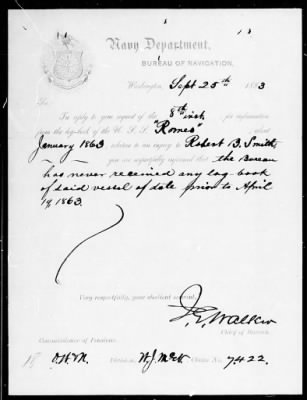 Walker
Navy Department,
BUREAU OF NAVIGATION,
Washington, Sept 25th 1883
Sir:
In reply to your request of the 8th inst. for information
from the log-book of the U. S. S. "Romeo" about
January 1863 relative to an injury to Robert B. Smith,
you are respectfully informed that the Bureau
has never received any log-book
of said vessel of date prior to April
19 1863.
Very respectfully, your obedient servant,
J. G. Walker
Chief of Bureau.
Commissioner of Pensions.
Division, W. J. McK Claim No. 7422.